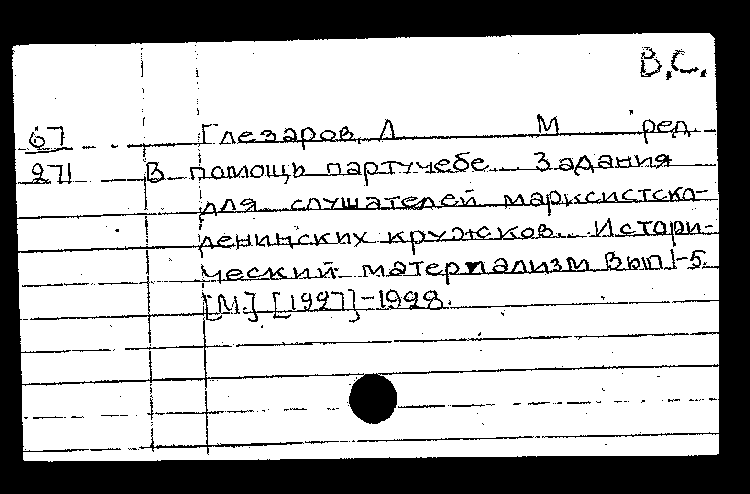 В.С.
67 Глезаров, Л М ред.
271 В помощь партучебе. Задания
для слушателей марксистско-
ленинских кружков. Истори-
ческий материализм Вып 1-5.
[М.] [1927]-1928.